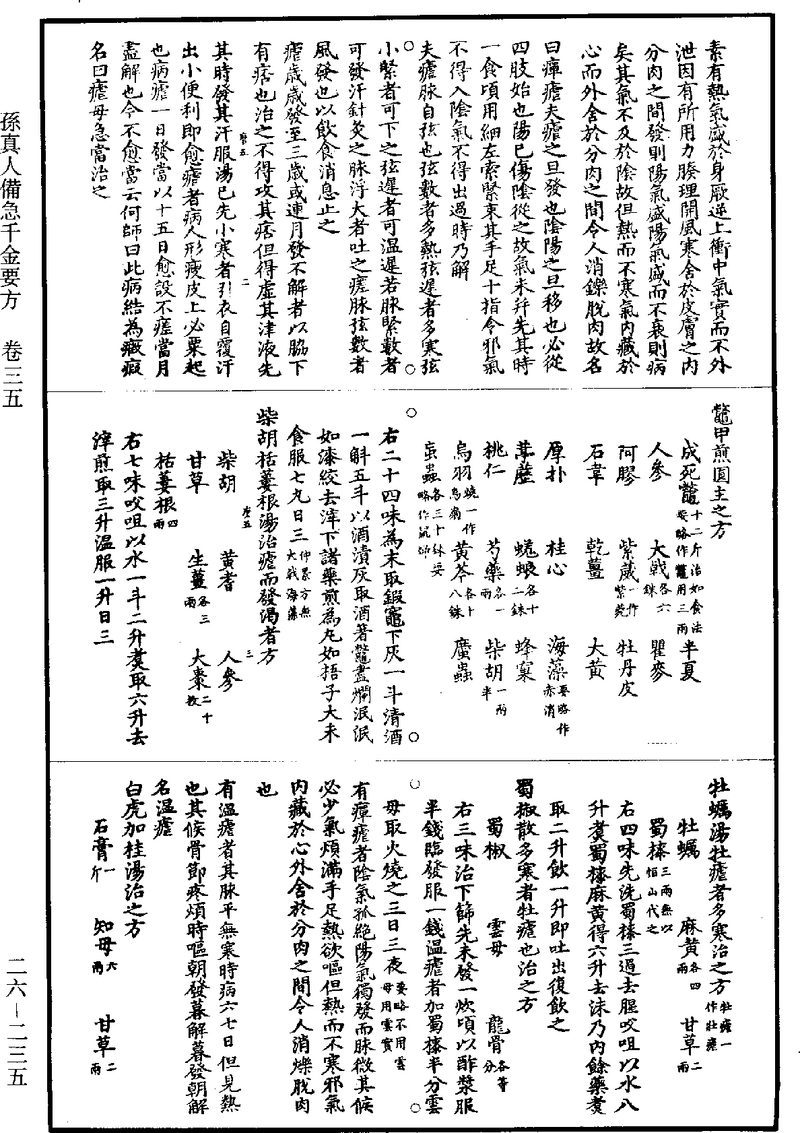 孫真人備急千金要方　卷三五
二六—二三五
素有熱氣盛於身厥逆上衝中氣實而不外
泄因有所用力腠理開風寒舍於皮膚之內
分肉之間發則陽氣盛陽氣盛而不衰則病
矣其氣不及於陰故但熱而不寒氣內藏於
心而外舍於分肉之間令人消鑠脫肉故名
曰癉瘧夫瘧之且發也陰陽之且移也必從
四肢始也陽已傷陰從之故氣未并先其時
一食頃用細左索緊束其手足十指令邪氣
不得入陰氣不得出過時乃解
夫瘧脉自弦也弦數者多熱弦遲者多寒弦
小緊者可下之弦遲者可溫遲若脉緊數者
可發汗針灸之脉浮大者吐之瘥脉弦數者
風發也以飲食消息止之
瘧歲歲發至三歲或連月發不解者以脇下
有痞也治之不得攻其痞但得虛其津液先
其時發其汗服湯已先小寒者引衣自覆汗
出小便利即愈瘧者病人形瘦皮上必粟起
也病瘧一日發當以十五日愈設不瘥當月
盡解也今不愈當云何師曰此病結為癥瘕
名曰瘧母急當治之
鼈甲煎圓主之方
成死鼈十二斤治如食法要略作鼈用三兩 半夏
人參　大戟各六銖　瞿麥
阿膠　紫葳一作紫菀　牡丹皮
石韋　乾薑　大黃
厚朴　桂心　海藻要略作赤消
葶藶　蜣蜋各十二銖　蜂窠
桃仁　芍藥各一兩　柴胡一兩半
烏羽燒一作烏扇　黃芩各十八銖　䗪蟲
䖟蟲各三十銖要略作鼠婦
右二十四味為末取鍜竈下灰一斗清酒
一斛五斗以酒漬灰取酒著鼈盡爛泯泯
如漆絞去滓下諸藥煎為丸如梧子大未
食服七丸日三仲景方無大戟海藻
柴胡栝蔞根湯治瘧而發渴者方
柴胡　黃耆　人參
甘草　生薑各三兩　大棗二十枚
栝蔞根四兩
右七味㕮咀以水一斗二升煮取六升去
滓煎取三升溫服一升日三
牡蠣湯牡瘧者多寒治之方牡瘧一作壯瘧
牡蠣　麻黃各四兩　甘草二兩
蜀㯶三兩無以恒山代之
右四味先洗蜀㯶三過去腥㕮咀以水八
升煮蜀㯶麻黃得六升去沫乃內餘藥煮
取二升飲一升即吐出復飲之
蜀椒散多寒者牡瘧也治之方
蜀椒　雲母　龍骨各等分
右三味治下篩先未發一炊頃以酢漿服
半錢臨發服一錢溫瘧者加蜀㯶半分雲
母取火燒之三日三夜要略不用雲母用雲實
有癉瘧者陰氣孤絕陽氣獨發而脉微其候
必少氣煩滿手足熱欲嘔但熱而不寒邪氣
內藏於心外舍於分肉之間令人消爍脫肉
也
有溫瘧者其脉平無寒時病六七日但見熱
也其候骨節疼煩時嘔朝發暮解暮發朝解
名溫瘧
白虎加桂湯治之方
石膏一斤　知母六兩　甘草二兩